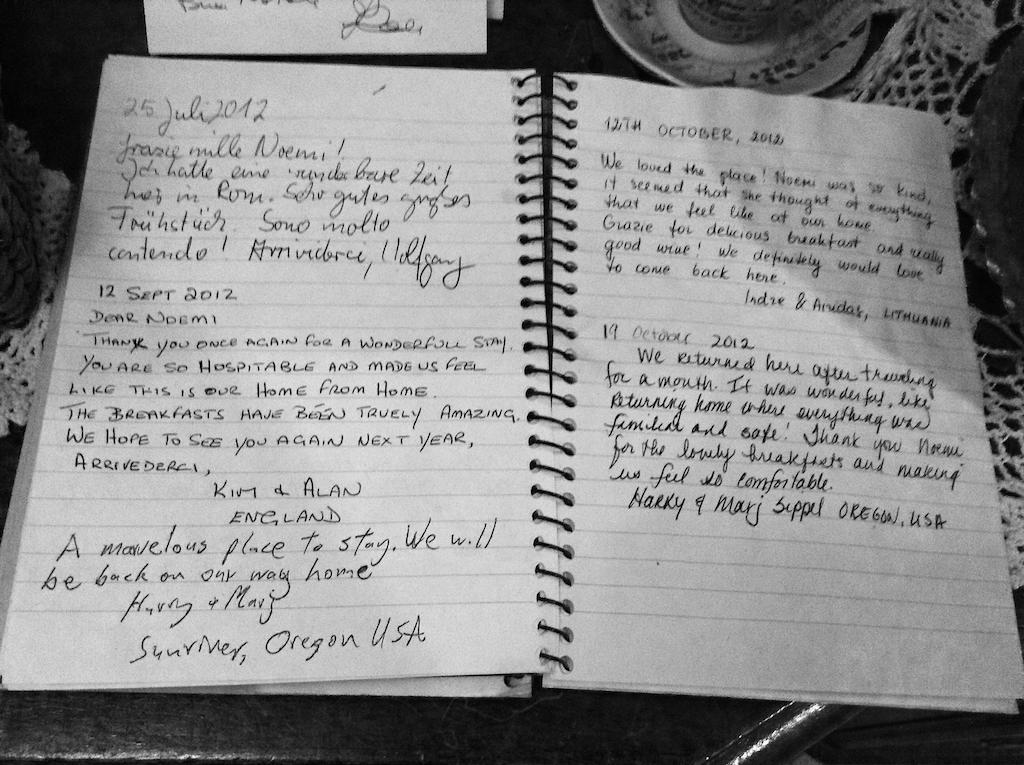 25 Juli 2012
Grazie mille Noemi!
Ich hatte eine wunderbare Zeit
hier in Rom. Sehr gutes großes
Frühstück. Sono molto
contendo! Arrividerci, Wolfgang
12 SEPT 2012
DEAR NOEMI
THANK YOU ONCE AGAIN FOR A WONDERFULL STAY.
YOU ARE SO HOSPITABLE AND MADE US FEEL
LIKE THIS IS OUR HOME FROM HOME.
THE BREAKFASTS HAVE BEEN TRUELY AMAZING.
WE HOPE TO SEE YOU AGAIN NEXT YEAR,
ARRIVEDERCI,
KIM & ALAN
ENGLAND
A marvelous place to stay. We will
be back on our way home
Harry & Marj
Sunriver, Oregon USA
12TH OCTOBER, 2012
We loved the place! Noemi was so kind,
it seemed that she thought of everything
that we feel like at our home
Grazie for delicious breakfast and really
good wine! We definitely would love
to come back here.
Indre & Arvidas, LITHUANIA
19 October 2012
We returned here after traveling
for a month. It was wonderful, like
returning home where everything was
familiar and safe! Thank you Noemi
for the lovely breakfasts and making
us feel so comfortable.
Harry & Marj Sippel OREGON, USA